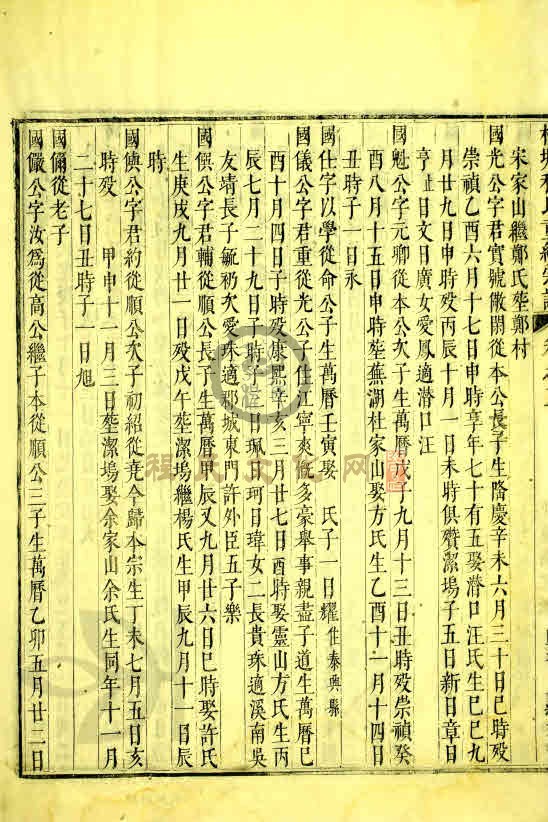 宋家山繼鄭氏塟鄭村
國光公字君實號儆閑從本公長子生隆慶辛未六月三十日巳時殁
崇禎乙酉六月十七日申時享年七十有五娶潛口汪氏生巳巳九
月廿九日申時殁丙辰二月一日未時俱殯潔塲子五日新日章日
亨日日文日廣女愛鳳適潛口汪
國魁公字元卿從本公次子生萬曆戊子九月十三日丑時殁崇禎癸
酉八月十五日申時塟蕪湖杜家山娶方氏生乙酉十一月十四日
丑時子一日永
國仕字以學從命公子生萬曆壬寅娶 氏子一日耀住泰興縣
國儀公字君重從光公子仕江寧爽慨多豪舉事親盡子道生萬曆巳
酉十月四日子時殁康熙辛亥三月廿七日酉時娶靈山方氏生丙
辰七月二十九日子時子四日珮日珂日瑋女二長貴珠適溪南吳
友靖長子毓礽次愛珠適郡城東門許外臣五子樂
國僎公字君輔從順公長子生萬曆甲辰又九月廿六日巳時娶許氏
生庚戌九月廿一日殁戊午塟潔塢繼楊氏生甲辰九月十一日辰
時
國㒜公字君約從順公次子初紹從堯今歸本宗生丁未七月五日亥
時殁 甲申十一月三日塟潔塢娶余家山余氏生同年十一月
二十七日丑時子一日旭
國儞從老子
國儼公字汝爲從高公繼子本從順公三子生萬曆乙卯五月廿二日
程氏文化网